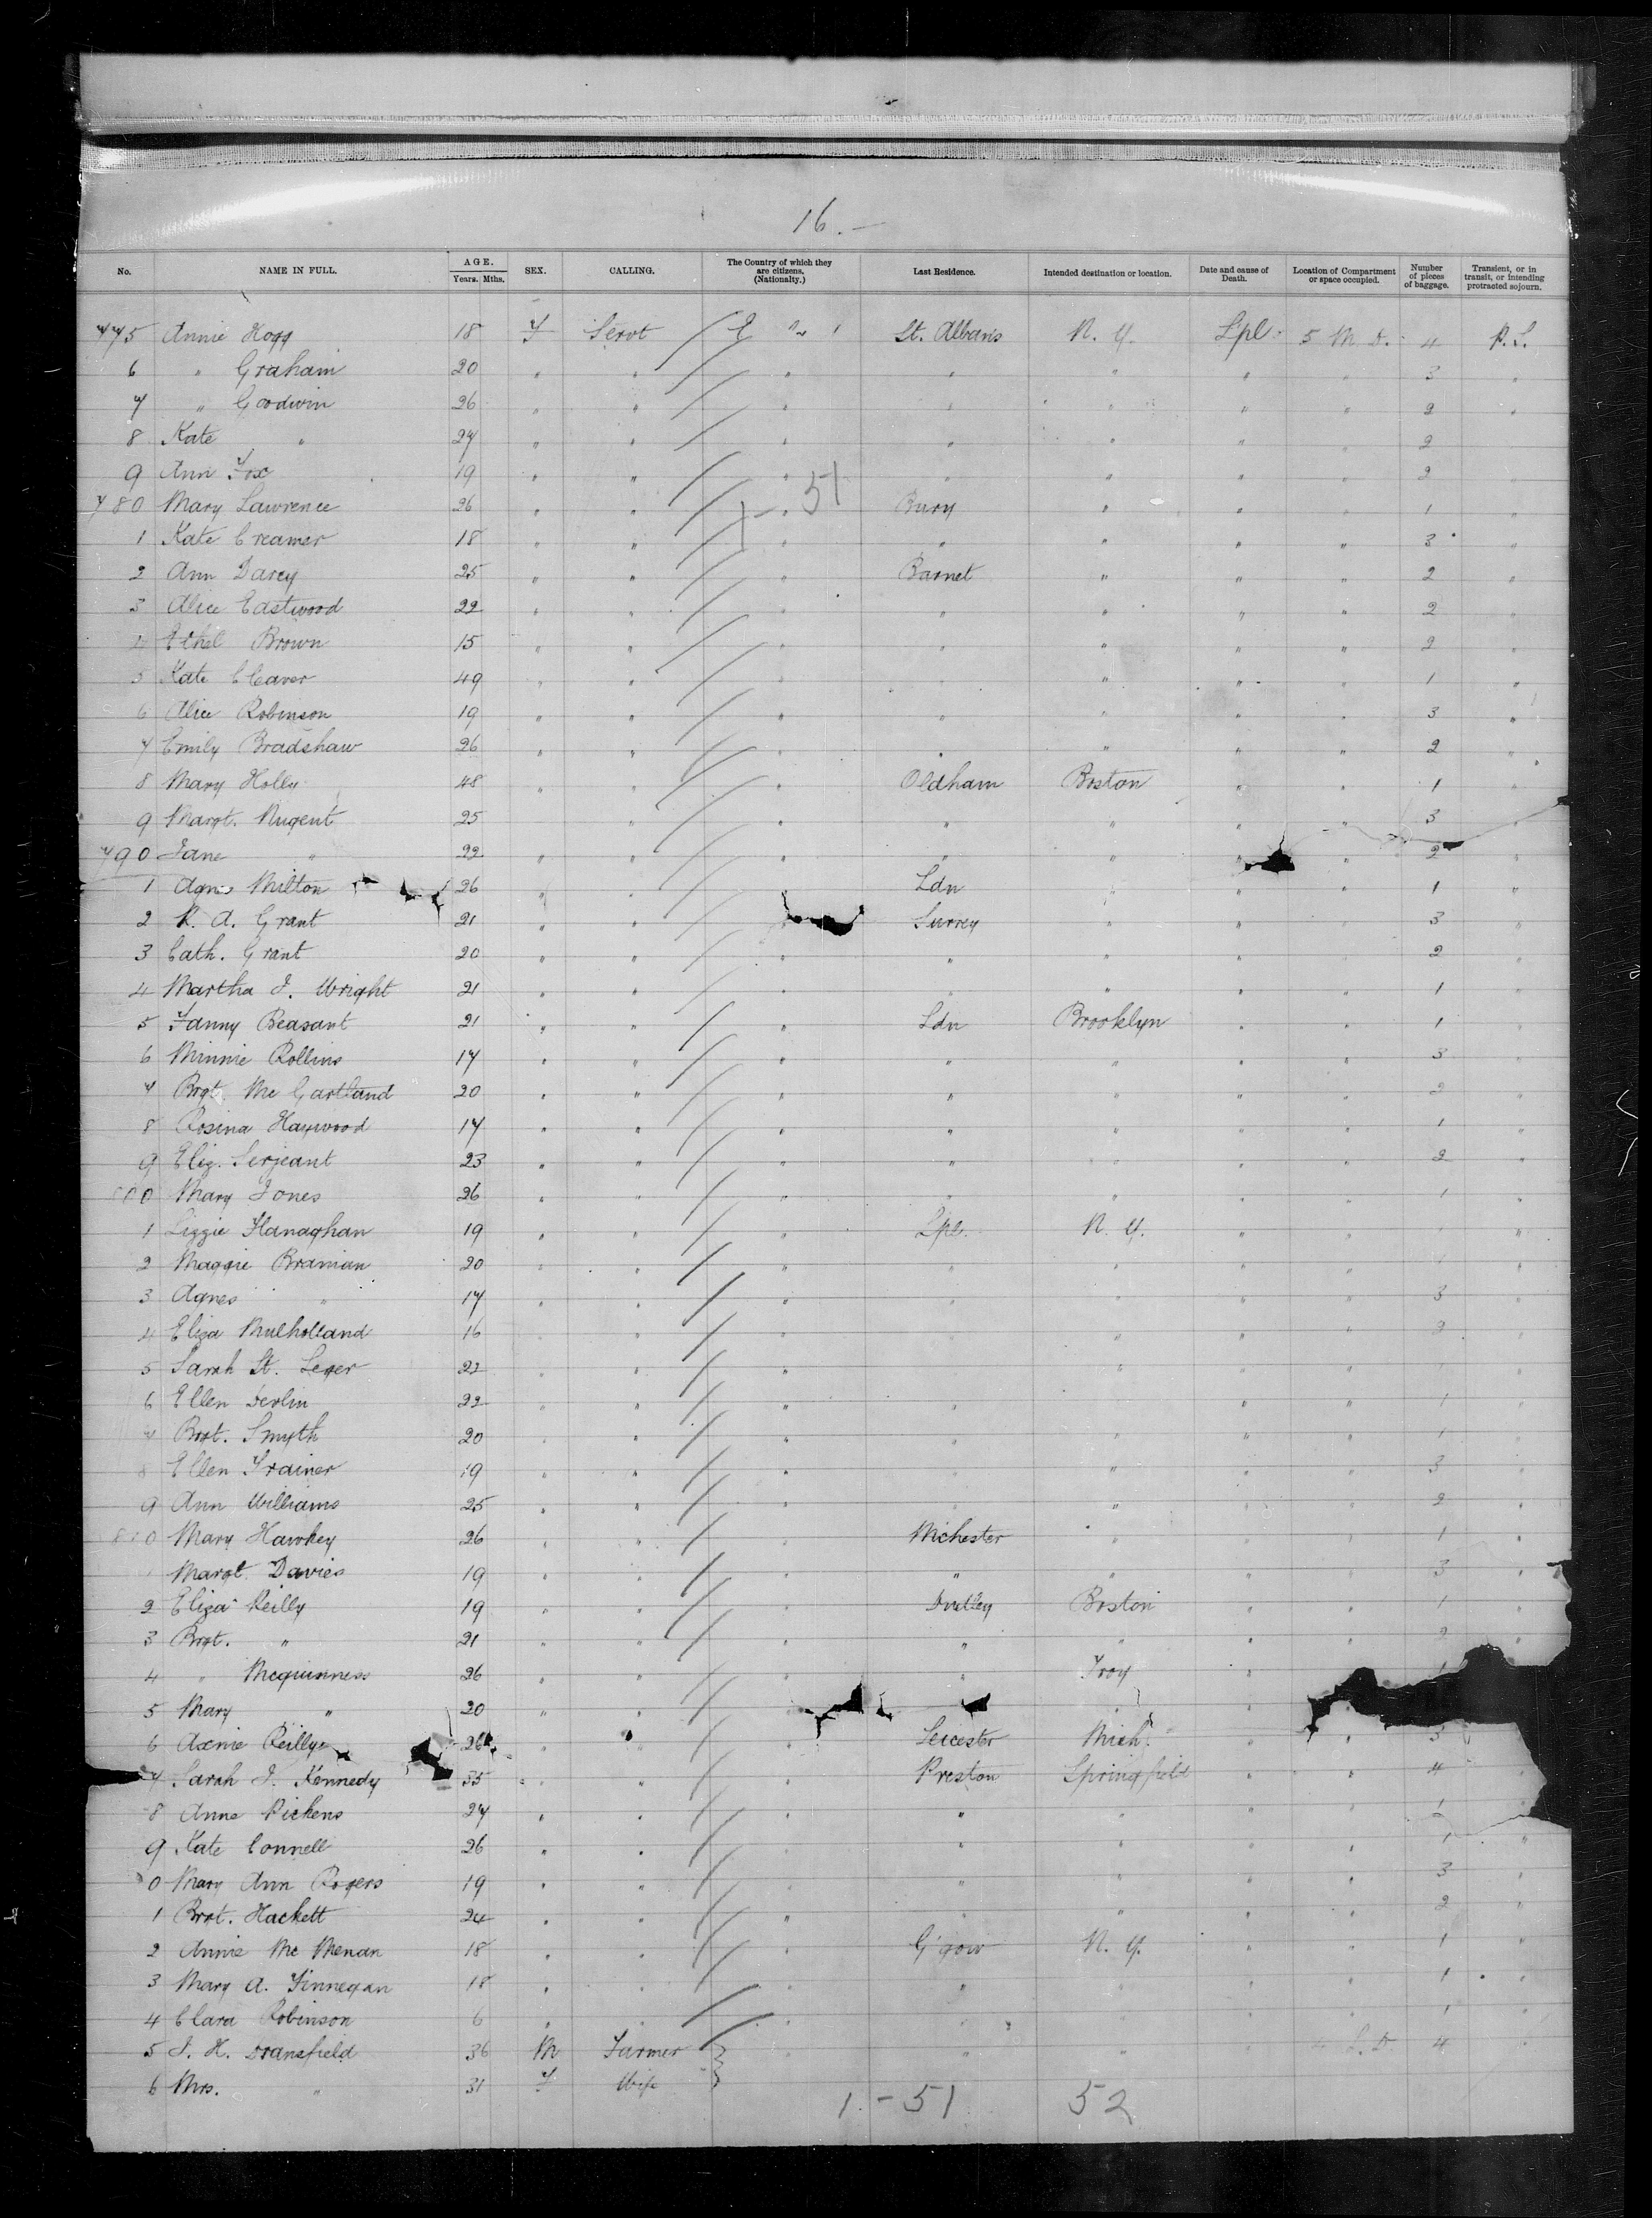 16.-
No. NAME IN FULL. AGE. Years. Mths. SEX. CALLING. The Country of which they are citizens. (Nationalty.) Last Residence. Intended destination or location. Date and cause of Death. Location of Compartment or space occupied. Number of pieces of baggage. Transient, or in transit, or intending protracted sojourn.
775 Annie Hogg 18 F Servt St. Albans N. Y. Lpl. 5 M D. 4 P.S.
6 " Graham 20 " " " " " " " 3 "
7 " Goodwin 26 " " " " " " " 2 "
8 Kate " 27 " " " " " " " 2
9 Ann Fox 19 " " " " " " " 2
780 Mary Lawrence 26 " " " Bury " " " 1 "
1 - 51
1 Kate Creamer 18 " " " " " " " 3 "
2 Ann Darcy 25 " " " Barnet " " " 2 "
3 Alice Eastwood 22 " " " " " " " 2 "
4 Ethel Brown 15 " " " " " " " 2 "
5 Kate Cleaver 49 " " " " " " " 1 "
6 Alice Robinson 19 " " " " " " " 3 "
7 Emily Bradshaw 26 " " " " " " " 2 "
8 Mary Holly 48 " " " Oldham Boston " " 1 "
9 Margt. Nugent 25 " " " " " " 3 "
790 Jane " 22 " " " " " " " 2 "
1 Agnes Milton 26 " " Ldn " " " 1 "
2 R. A. Grant 21 " " " Surrey " " " 3 "
3 Cath. Grant 20 " " " " " " " 2 "
4 Martha J. Wright 21 " " " " " " " 1 "
5 Fanny Beasant 21 " " " Ldn Brooklyn " " 1 "
6 Minnie Rollins 17 " " " " " " " 3 "
7 Brgt. Mc Gartland 20 " " " " " " " 2 "
8 Rosina Haywood 17 " " " " " " " 1 "
9 Eliz. Serjeant 23 " " " " " " " 2 "
800 Mary Jones 26 " " " " " " " 1 "
1 Lizzie Flanaghan 19 " " " Lpl. N. Y. " " "
2 Maggie Branian 20 " " " " " " " "
3 Agnes " 17 " " " " " " " 3 "
4 Eliza Mulholland 16 " " " " " " " 2 "
5 Sarah St. Leger 22 " " " " " " "
6 Ellen Devlin 22 " " " " " " 1 "
7 Brgt. Smyth 20 " " " " " " " 1 "
8 Ellen Trainer 19 " " " " " " " 3 "
9 Ann Williams 25 " " " " " " " 2 "
810 Mary Hawkey 26 " " " Mchester " " " 1 "
Margt. Davies 19 " " " " " " " 3 "
2 Eliza Reilly 19 " " " Dudley Boston " " 1 "
3 Brgt. " 21 " " " " " " " 2 "
4 " Mcguinness 26 " " " " Troy " 1
5 Mary " 20 " " " " "
6 Reilly 26 " " " Leicester Mich. " " 3
7 Sarah J. Kennedy 35 " " " Preston Springfield " " 4 "
8 Anne Pickens 27 " " " " " " " 1
9 Kate Connell 26 " " " " " " " 1 "
0 Mary Ann Rogers 19 " " " " " " " 3 "
1 Brgt. Hackett 24 " " " " " " " 2 "
2 Annie Mc Menan 18 " " " G'gow N. Y. " " 1 "
3 Mary A. Finnegan 18 " " " " " " " 1 "
4 Clara Robinson 6 " " " " " " " 1 "
5 J. H. Dransfield 36 M Farmer " " " 4 "
6 Mrs. " 31 F Wife
1 - 51 52